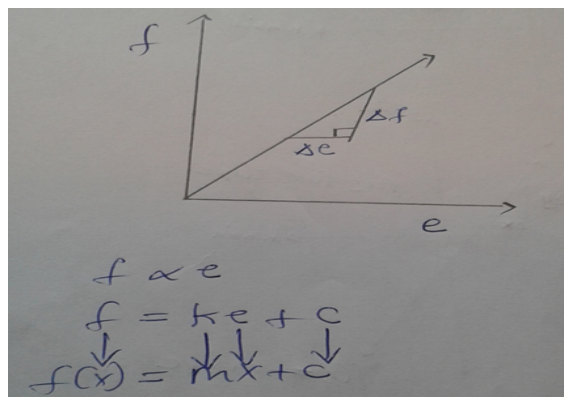 f
Δf
Δe
e
f ∝ e
f = ke + c
f(x) = mx + c